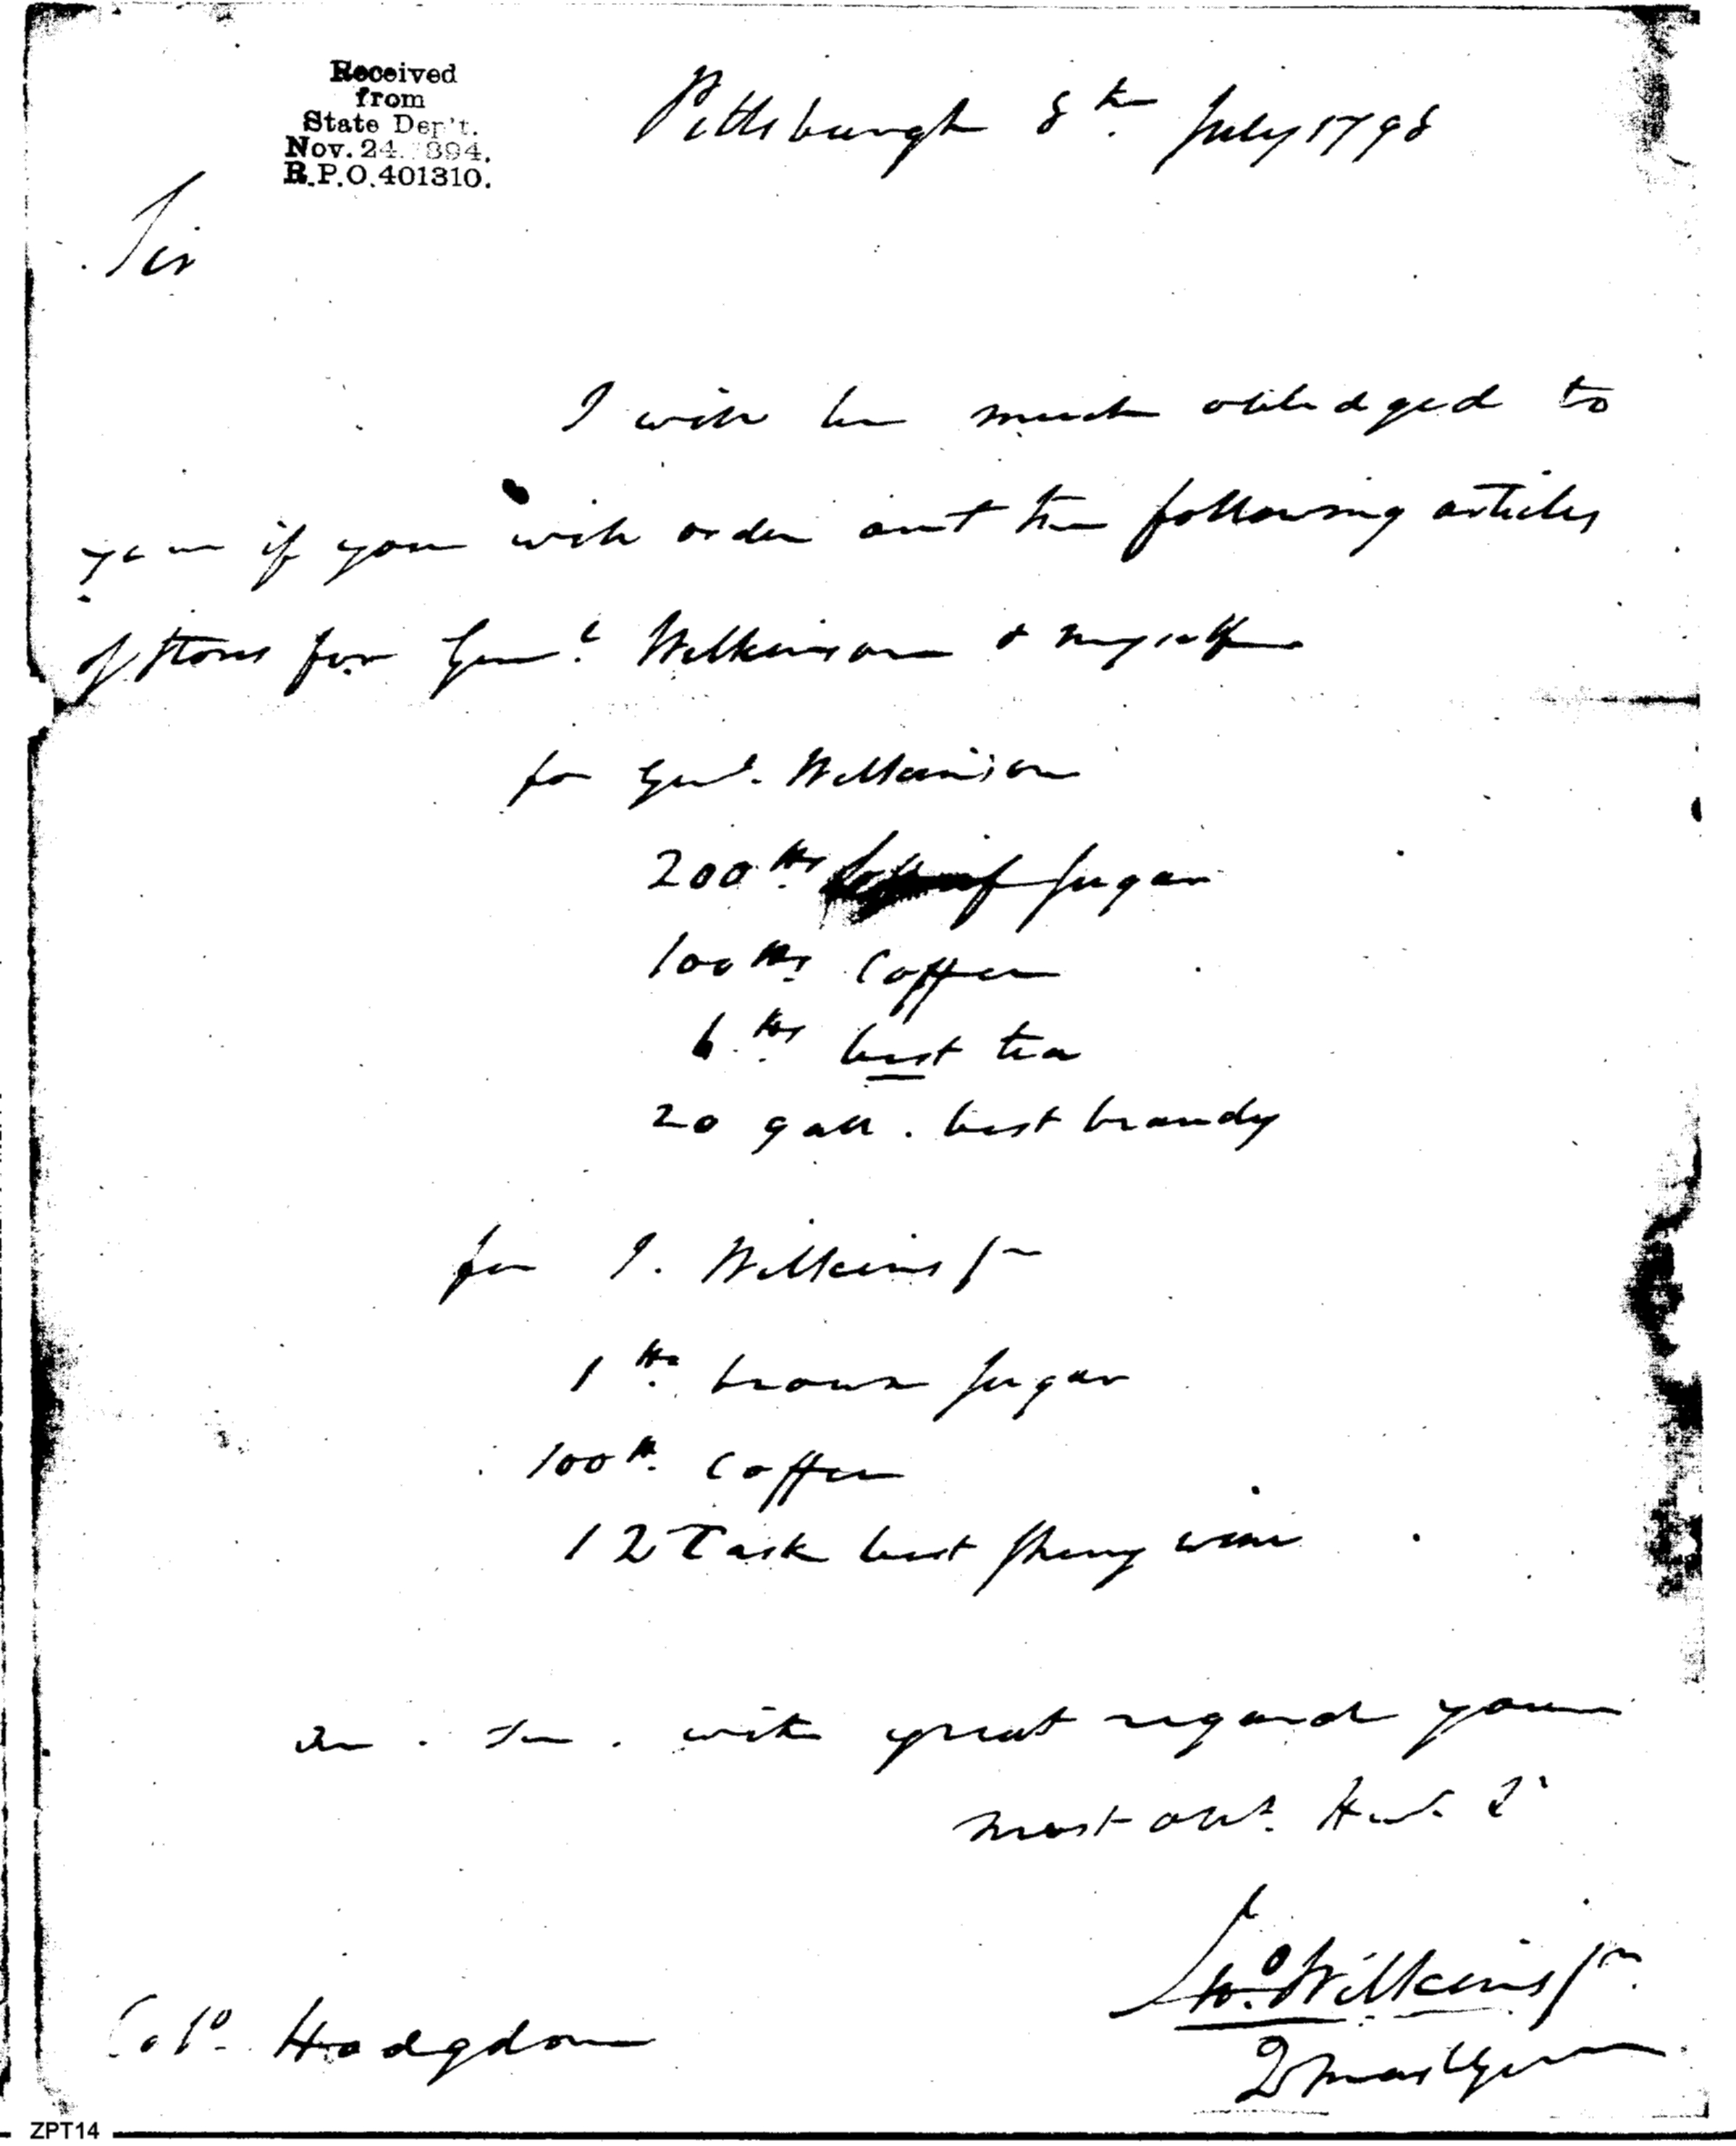 Received
from
State Dep't.
Nov. 24. 1894.
R.P.O. 401310.
Pittsburgh 8th July 1798
Sir
I will be much obledged to
you if you will order out the following articles
of stores for Genl Wilkinson & myself
for Genl. Wilkinson
200 lbs sugar
100 lbs Coffee
6 lbs best tea
20 gall. best brandy
for J. Wilkins Jr
1 brown sugar
100 lb Coffee
1 2 Cask best sherry wine
with great regard your
most obt. Hul. St
Jno. Wilkins Jr
QMasGen
Colo Hodgdon
ZPT14